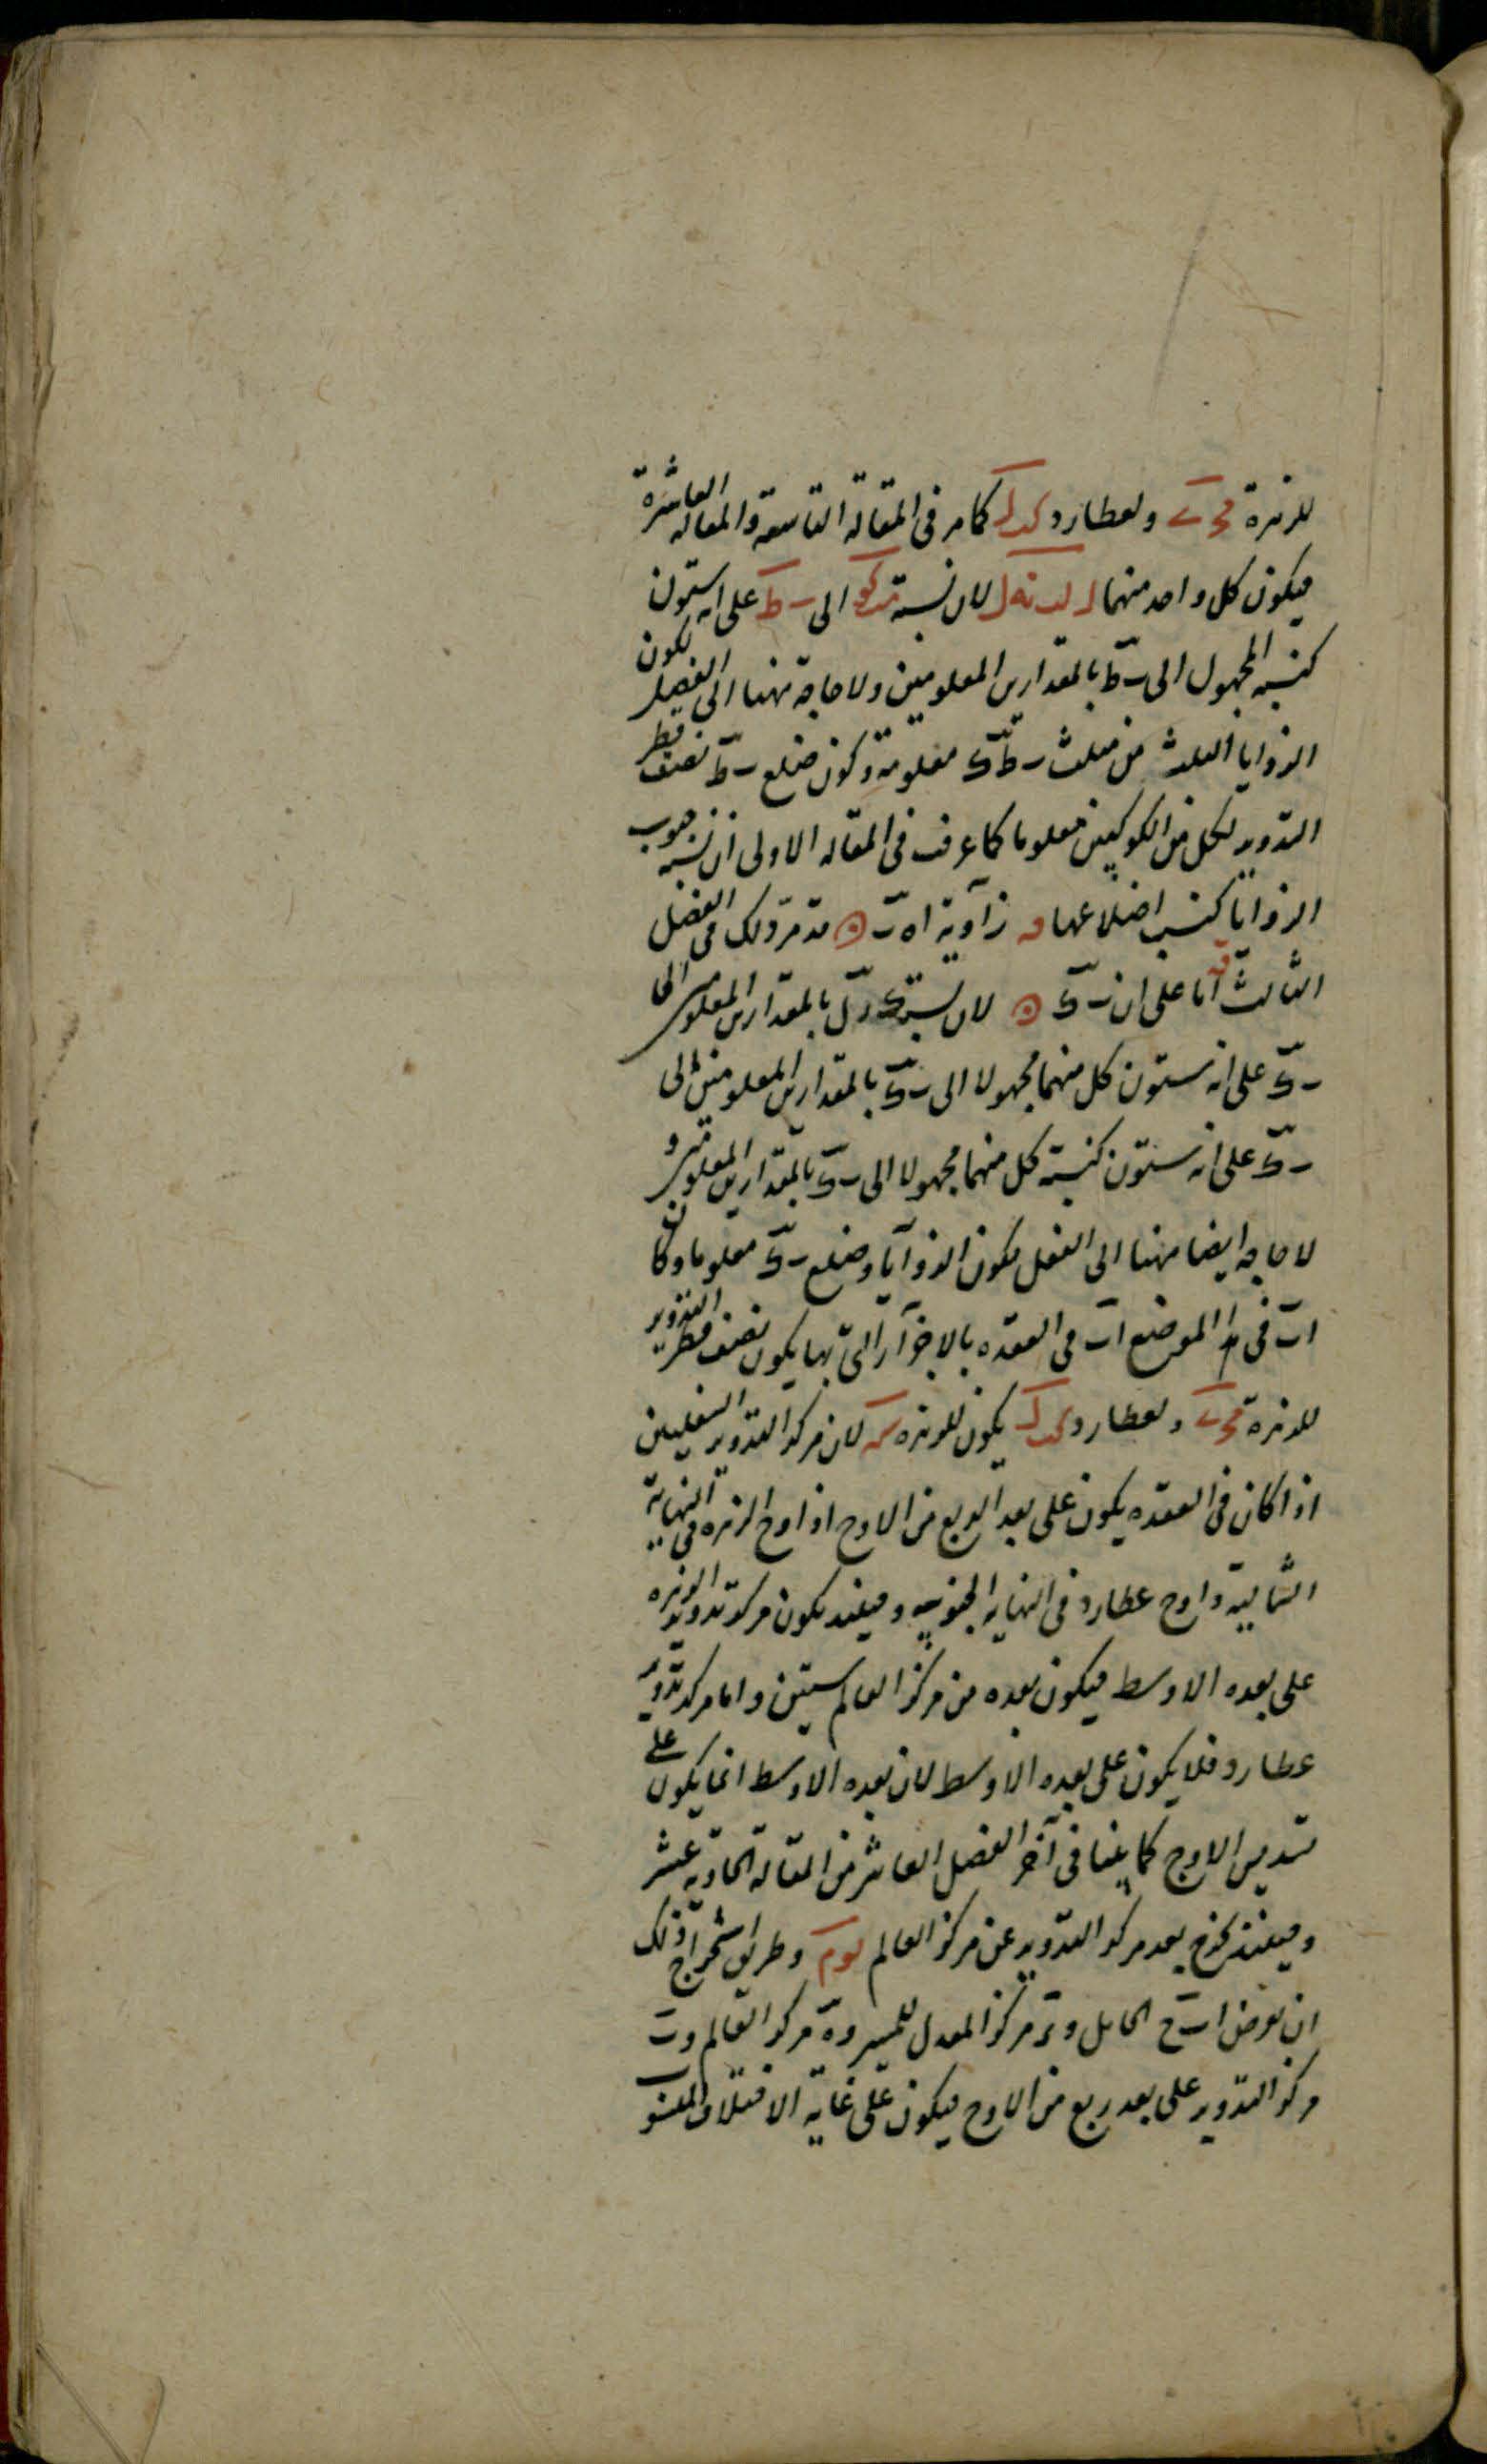 للزهرة مج ى ولعطارد كب ل كما مر فى المقالة التاسعة والمقاله العاشرة
فيكون كل واحد منهما لان نسبة الى ط على انه ستون
كنسبه المجهول الى ط بالمقدارين المعلومين ولا حاجة ههنا الى الفصل لكون
الزوايا الثلث من مثلث معلومة وكون ضلع ط نصف قطر
التدوير لكل من الكوكبين معلوما كما عرفت فى المقاله الاولى ان نسبه جيوب
الزوايا كنسب اضلاعها زاوية اه قد مر ذلك فى الفصل
الثالث على ان لان نسبة بالمقدارين المعلومين الى
على انه ستون كل منهما مجهولا الى بالمقدارين المعلومين الى
على انه ستون كنسبة كل منهما مجهولا الى بالمقدارين المعلومين و
لا حاجه ايضا ههنا الى الفصل لكون الزوايا وضلع معلوما وكان
اب فى الموضع اب فى العقده بالاجزاء التى بها يكون نصف قطر التدوير
للزهرة مج ى ولعطارد كب ل يكون للزهره س لان مركز التدوير السفليين
اذا كان فى العقده يكون على بعد الربع من الاوج اذ اوج الزهره فى النهاية
الشمالية واوج عطارد فى النهايه الجنوبيه وحينئذ يكون مركز تدوير الزهره
على بعده الاوسط فيكون بعده من مركز العالم ستين واما مركز تدوير
عطارد فلا يكون على بعده الاوسط لان بعده الاوسط انما يكون على
تسديس الاوج كما بينا فى آخر الفصل العاشر من المقالة الحادية عشر
وحينئذ يخرج بعد مركز التدوير عن مركز العالم نو م وطريق استخراج ذلك
ان نفرض اب ج الحامل و مركز المعدل للمسير وه مركز العالم وب
مركز التدوير على بعد ربع من الاوج فيكون على غاية الاختلاف المنسوب